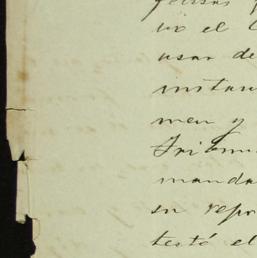 vó el
usar de
instan
men y
Tribun
manda
su repr
testó el